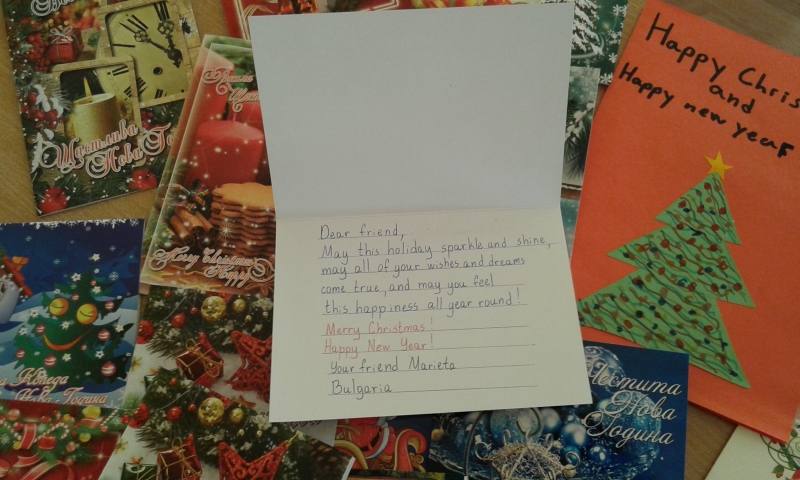 Щастлива
Нова Го
Merry Christmas
Happy
Коледа
Нова Година
Dear friend,
May this holiday sparkle and shine,
may all of your wishes and dreams
come true, and may you feel
this happiness all year round!
Merry Christmas!
Happy New Year!
Your friend Marieta
Bulgaria
Happy Chris
and
Happy new year
Честита
Нова
Година